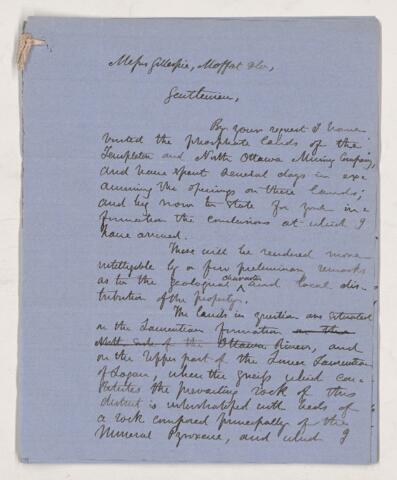 Messrs Gillespie, Moffat & Co,
Gentlemen,
By your request I have
visited the phosphate lands of the
Templeton and North Ottawa Mining Company,
and have spent several days in exa-
mining the openings on these lands;
and beg now to state for your in-
formation the conclusions at which I
have arrived.
These will be rendered more
intelligible by a few preliminary remarks
as to the geological character and local dis-
tribution of the property.
The lands in question are situated
on the Laurentian formation on the
North side of the Ottawa River, and
on the Upper part of the Lower Laurentian
of Logan, where the gneiss which con-
stitutes the prevailing rock of this
district is interstratified with beds of
a rock composed principally of the
Mineral Pyroxene, and which I